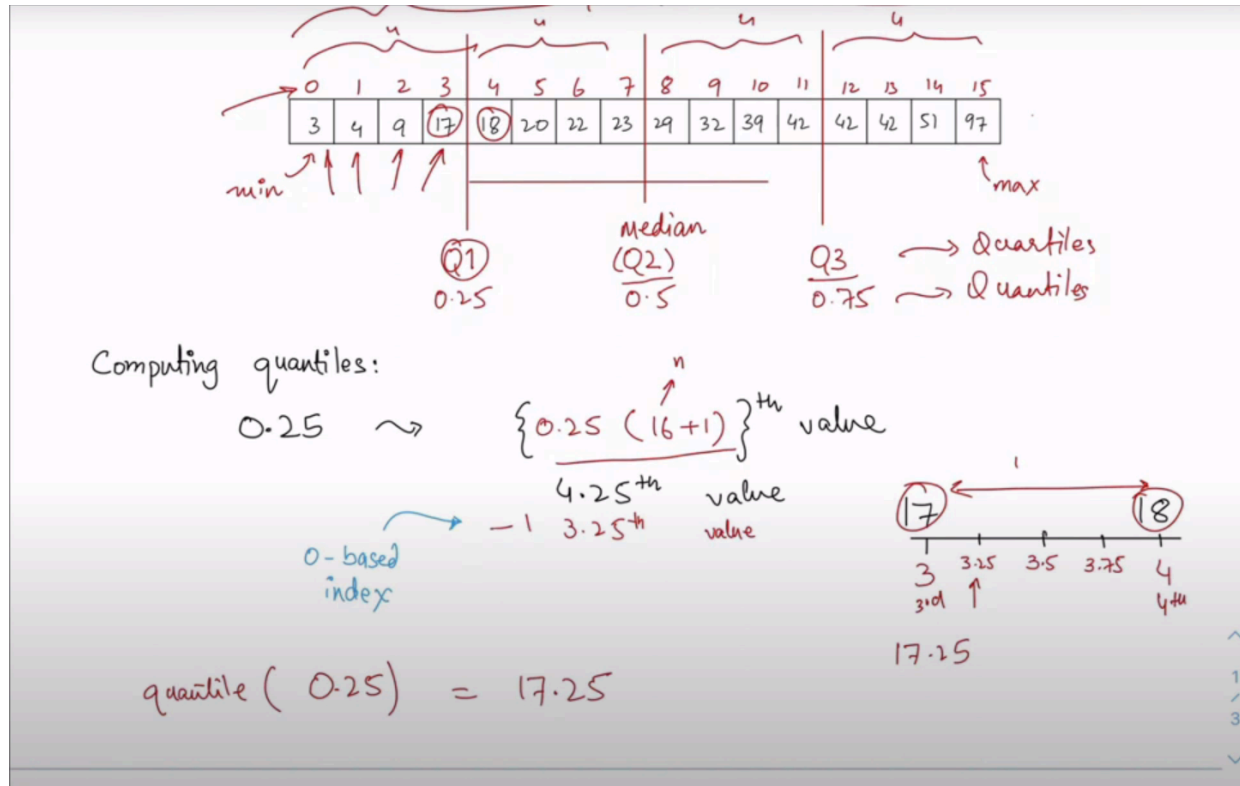 4 4 4 4
0 1 2 3 4 5 6 7 8 9 10 11 12 13 14 15
3 4 9 17 18 20 22 23 29 32 39 42 42 42 51 97
min max
Median
Q1 (Q2) Q3 Quartiles
0.25 0.5 0.75 Quantiles
Computing quantiles:
n
0.25 {0.25 (16+1)}th value
4.25th value
-1 3.25th value
0-based
index
1
17 18
3 3.25 3.5 3.75 4
3rd 4th
17.25
quantile( 0.25) = 17.25
1
/
3